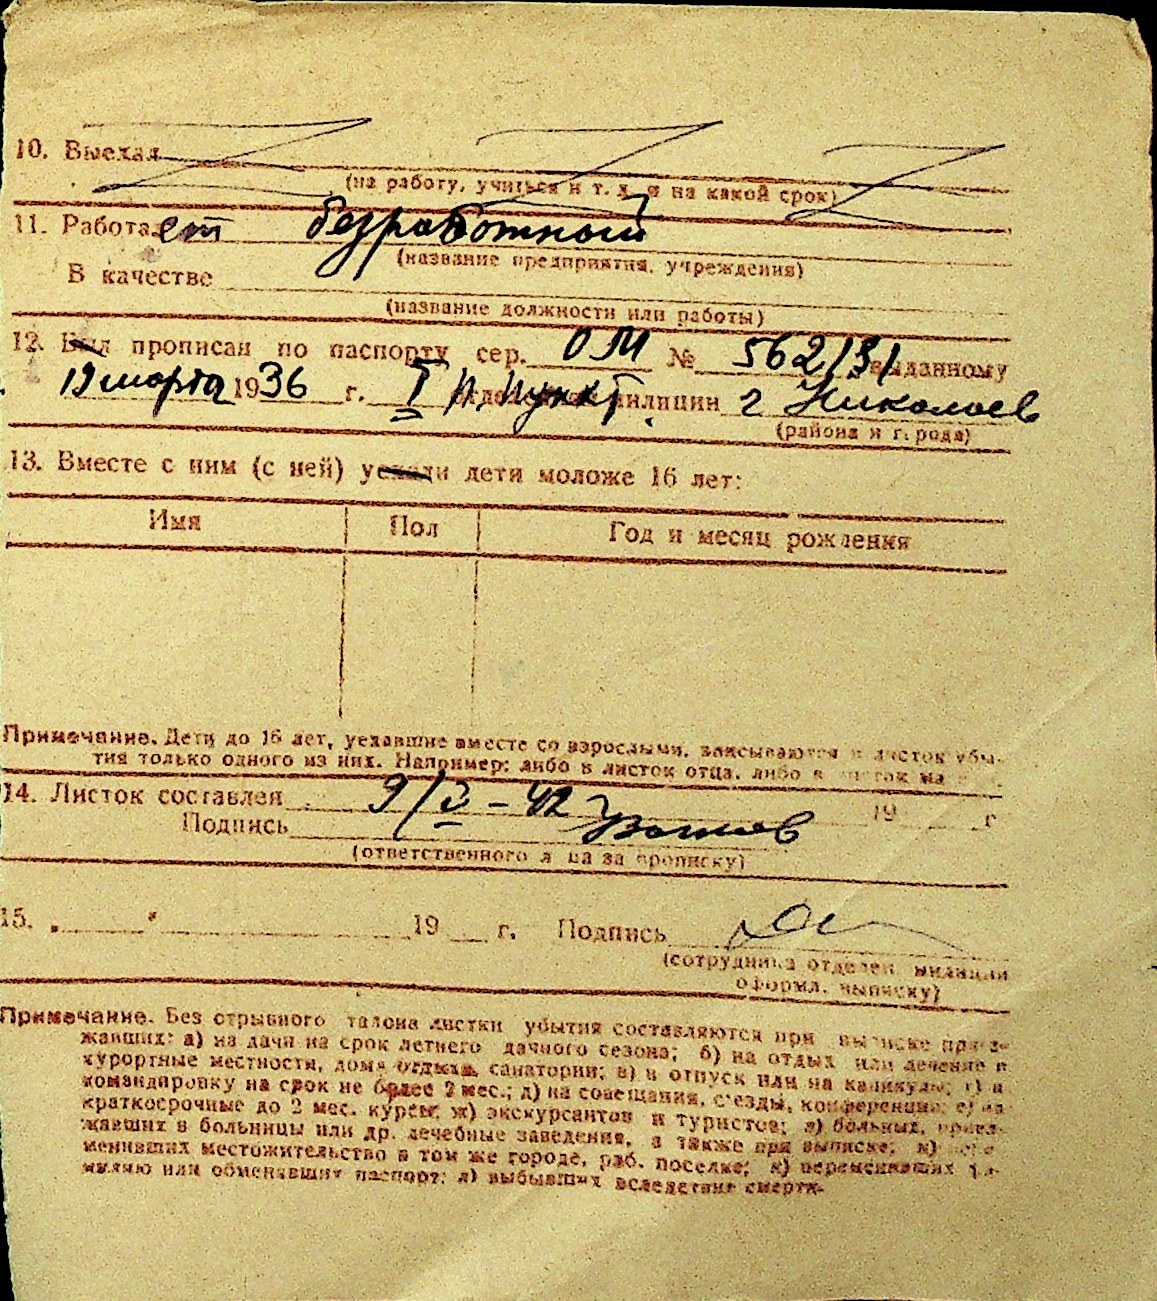 10. Выехал
(на работу, учиться и т. д. и на какой срок)
11. Работает безработный
(название предприятия, учреждения)
В качестве
(название должности или работы)
12. Был прописан по паспорту сер. ОМ № 562131 выданному
19 марта 1936 г. I п. пункт. милиции г Николаев
(района и города)
13. Вместе с ним (с ней) уехали дети моложе 16 лет:
Имя Пол Год и месяц рождения
Примечание. Дети до 16 лет, уехавшие вместе со взрослыми, записываются в листок убы-
тия только одного из них. Например: либо в листок отца, либо в листок
14. Листок составлен 9/V-42 19 г
Подпись
(ответственного лица за прописку)
15. " " 19 г. Подпись
(сотрудника отделен. милиции
оформл. выписку)
Примечание. Без отрывного талона листки убытия составляются при выписке приез-
жавших: а) на дачи на срок летнего дачного сезона; б) на отдых или лечение в
курортные местности, дома отдыха, санатории; в) в отпуск или на каникулы; г) в
командировку на срок не более 2 мес.; д) на совещания, с'езды, конференции; е) на
краткосрочные до 2 мес. курсы; ж) экскурсантов и туристов; з) больных, приез-
жавших в больницы или др. лечебные заведения, а также при выписке; и) пере-
менивших местожительство в том же городе, раб. поселке; к) переменивших фа-
милию или обменявших паспорт; л) выбывших вследствие смерти.